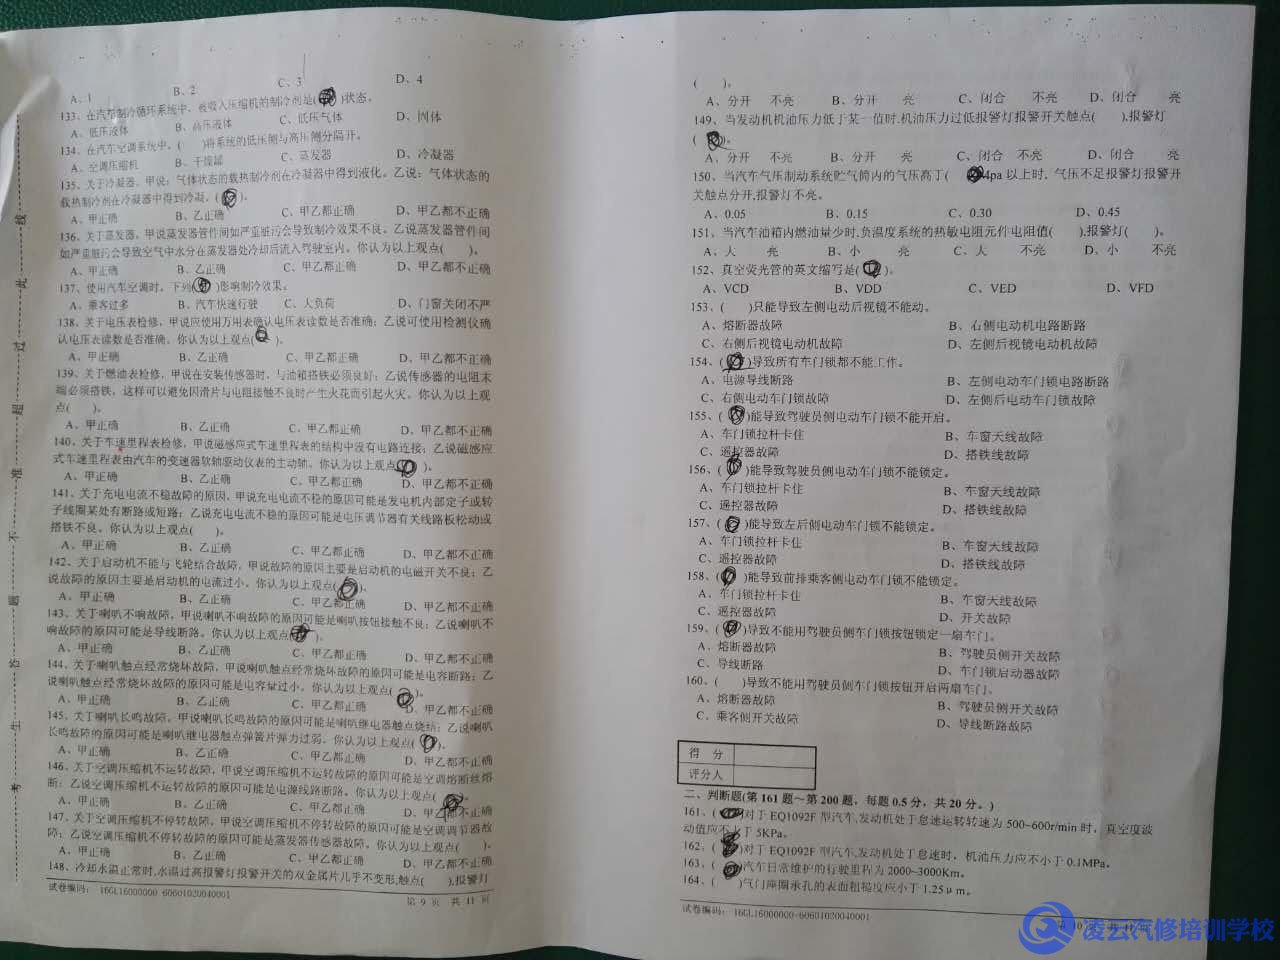 A、1 B、2 C、3 D、4
133、在汽车制冷循环系统中，被吸入压缩机的制冷剂是( )状态。
A、低压液体 B、高压液体 C、低压气体 D、固体
134、在汽车空调系统中，( )将系统的低压侧与高压侧分隔开。
A、空调压缩机 B、干燥罐 C、蒸发器 D、冷凝器
135、关于冷凝器，甲说：气体状态的载热制冷剂在冷凝器中得到液化。乙说：气体状态的
载热制冷剂在冷凝器中得到冷凝。( )。
A、甲正确 B、乙正确 C、甲乙都正确 D、甲乙都不正确
136、关于蒸发器，甲说蒸发器管件间如严重脏污会导致制冷效果不良。乙说蒸发器管件间
如严重脏污会导致空气中水分在蒸发器处冷却后流入驾驶室内。你认为以上观点( )。
A、甲正确 B、乙正确 C、甲乙都正确 D、甲乙都不正确
137、使用汽车空调时，下列( )影响制冷效果。
A、乘客过多 B、汽车快速行驶 C、大负荷 D、门窗关闭不严
138、关于电压表检修，甲说应使用万用表确认电压表读数是否准确；乙说可使用检测仪确
认电压表读数是否准确。你认为以上观点( )。
A、甲正确 B、乙正确 C、甲乙都正确 D、甲乙都不正确
139、关于燃油表检修，甲说在安装传感器时，与油箱搭铁必须良好；乙说传感器的电阻末
端必须搭铁，这样可以避免因滑片与电阻接触不良时产生火花而引起火灾。你认为以上观
点( )。
A、甲正确 B、乙正确 C、甲乙都正确 D、甲乙都不正确
140、关于车速里程表检修，甲说磁感应式车速里程表的结构中没有电路连接；乙说磁感应
式车速里程表由汽车的变速器软轴驱动仪表的主动轴。你认为以上观点( )。
A、甲正确 B、乙正确 C、甲乙都正确 D、甲乙都不正确
141、关于充电电流不稳故障的原因，甲说充电电流不稳的原因可能是发电机内部定子或转
子线圈某处有断路或短路；乙说充电电流不稳的原因可能是电压调节器有关线路板松动或
搭铁不良。你认为以上观点( )。
A、甲正确 B、乙正确 C、甲乙都正确 D、甲乙都不正确
142、关于启动机不能与飞轮结合故障，甲说故障的原因主要是启动机的电磁开关不良；乙
说故障的原因主要是启动机的电流过小。你认为以上观点( )。
A、甲正确 B、乙正确 C、甲乙都正确 D、甲乙都不正确
143、关于喇叭不响故障，甲说喇叭不响故障的原因可能是喇叭按钮接触不良；乙说喇叭不
响故障的原因可能是导线断路。你认为以上观点( )。
A、甲正确 B、乙正确 C、甲乙都正确 D、甲乙都不正确
144、关于喇叭触点经常烧坏故障，甲说喇叭触点经常烧坏故障的原因可能是电容断路；乙
说喇叭触点经常烧坏故障的原因可能是电容量过小。你认为以上观点( )。
A、甲正确 B、乙正确 C、甲乙都正确 D、甲乙都不正确
145、关于喇叭长鸣故障，甲说喇叭长鸣故障的原因可能是喇叭继电器触点烧结；乙说喇叭
长鸣故障的原因可能是喇叭继电器触点弹簧片弹力过弱。你认为以上观点( )。
A、甲正确 B、乙正确 C、甲乙都正确 D、甲乙都不正确
146、关于空调压缩机不运转故障，甲说空调压缩机不运转故障的原因可能是空调熔断丝熔
断；乙说空调压缩机不运转故障的原因可能是电源线路断路。你认为以上观点( )。
A、甲正确 B、乙正确 C、甲乙都正确 D、甲乙都不正确
147、关于空调压缩机不停转故障，甲说空调压缩机不停转故障的原因可能是空调调节器故
障；乙说空调压缩机不停转故障的原因可能是蒸发器传感器故障。你认为以上观点( )。
A、甲正确 B、乙正确 C、甲乙都正确 D、甲乙都不正确
148、冷却水温正常时,水温过高报警灯报警开关的双金属片几乎不变形,触点( ),报警灯
试卷编码： 16GL16000000-60601020040001 第 9 页 共 11 页
考 生 答 题 不 准 超 过 此 线
( )。
A、分开 不亮 B、分开 亮 C、闭合 不亮 D、闭合 亮
149、当发动机机油压力低于某一值时,机油压力过低报警灯报警开关触点( ),报警灯
( )。
A、分开 不亮 B、分开 亮 C、闭合 不亮 D、闭合 亮
150、当汽车气压制动系统贮气筒内的气压高于( )Mpa 以上时, 气压不足报警灯报警开
关触点分开,报警灯不亮。
A、0.05 B、0.15 C、0.30 D、0.45
151、当汽车油箱内燃油量少时,负温度系统的热敏电阻元件电阻值( ),报警灯( )。
A、大 亮 B、小 亮 C、大 不亮 D、小 不亮
152、真空荧光管的英文缩写是( )。
A、VCD B、VDD C、VED D、VFD
153、( )只能导致左侧电动后视镜不能动。
A、熔断器故障 B、右侧电动机电路断路
C、右侧后视镜电动机故障 D、左侧后视镜电动机故障
154、( )导致所有车门锁都不能工作。
A、电源导线断路 B、左侧电动车门锁电路断路
C、右侧电动车门锁故障 D、左侧后电动车门锁故障
155、( )能导致驾驶员侧电动车门锁不能开启。
A、车门锁拉杆卡住 B、车窗天线故障
C、遥控器故障 D、搭铁线故障
156、( )能导致驾驶员侧电动车门锁不能锁定。
A、车门锁拉杆卡住 B、车窗天线故障
C、遥控器故障 D、搭铁线故障
157、( )能导致左后侧电动车门锁不能锁定。
A、车门锁拉杆卡住 B、车窗天线故障
C、遥控器故障 D、搭铁线故障
158、( )能导致前排乘客侧电动车门锁不能锁定。
A、车门锁拉杆卡住 B、车窗天线故障
C、遥控器故障 D、开关故障
159、( )导致不能用驾驶员侧车门锁按钮锁定一扇车门。
A、熔断器故障 B、驾驶员侧开关故障
C、导线断路 D、车门锁启动器故障
160、( )导致不能用驾驶员侧车门锁按钮开启两扇车门。
A、熔断器故障 B、驾驶员侧开关故障
C、乘客侧开关故障 D、导线断路故障
得 分
评分人
二、判断题(第 161 题～第 200 题，每题 0.5 分，共 20 分。)
161、( )对于 EQ1092F 型汽车,发动机处于怠速运转转速为 500~600r/min 时，真空度波
动值应不大于 5KPa。
162、( )对于 EQ1092F 型汽车,发动机处于怠速时，机油压力应不小于 0.1MPa。
163、( )汽车日常维护的行驶里程为 2000~3000Km。
164、( )气门座圈承孔的表面粗糙度应小于 1.25μm。
试卷编码： 16GL16000000-60601020040001
凌云汽修培训学校